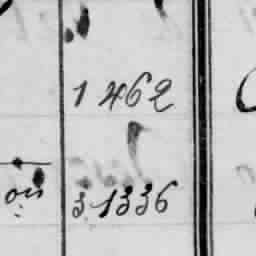 1 462
on 3 1336